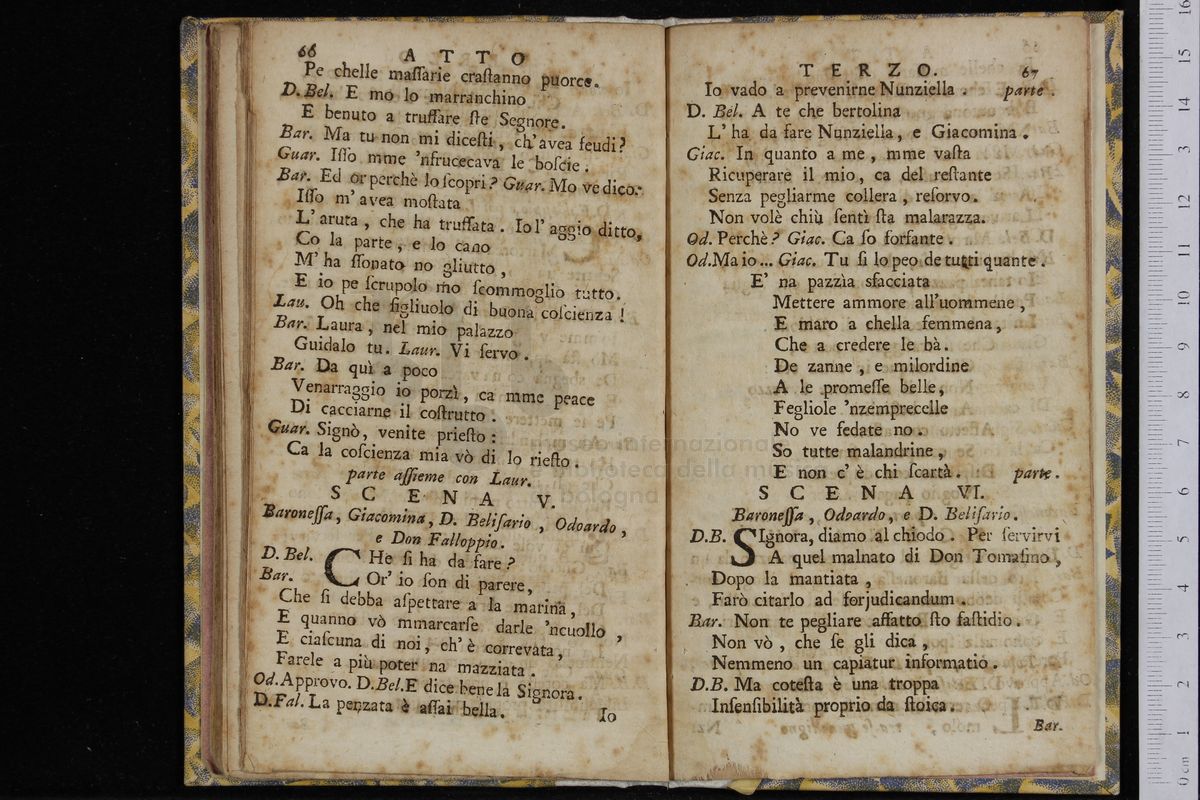 66 ATTO
Pe chelle maſſarie craſtanno puorce.
D. Bel. E mo lo marranchino
E benuto a truffare ſte Segnore.
Bar. Ma tu non mi diceſti, ch'avea feudi?
Guar. Iſſo mme 'nfrucecava le boſcie.
Bar. Ed or perchè lo ſcopri? Guar. Mo ve dico:
Iſſo m'avea moſtata
L'aruta, che ha truffata. Io l'aggio ditto,
Co la parte, e lo cano
M'ha ſſonato no gliutto,
E io pe ſcrupolo mo ſcommoglio tutto.
Lau. Oh che figliuolo di buona coſcienza!
Bar. Laura, nel mio palazzo
Guidalo tu. Laur. Vi ſervo.
Bar. Da quì a poco
Venarraggio io porzì, ca mme peace
Di cacciarne il coſtrutto.
Guar. Signò, venite prieſto:
Ca la coſcienza mia vò di lo rieſto.
parte aſſieme con Laur.
SCENA V.
Baroneſſa, Giacomina, D. Beliſario, Odoardo,
e Don Falloppio.
D. Bel. CHe ſi ha da fare?
Bar. Or' io ſon di parere,
Che ſi debba aſpettare a la marina,
E quanno vò mmarcarſe darle 'ncuollo,
E ciaſcuna di noi, ch'è correvata,
Farele a più poter na mazziata.
Od. Approvo. D. Bel. E dice bene la Signora.
D. Fal. La penzata è aſſai bella.
Io
TERZO. 67
Io vado a prevenirne Nunziella. parte.
D. Bel. A te che bertolina
L'ha da fare Nunziella, e Giacomina.
Giac. In quanto a me, mme vaſta
Ricuperare il mio, ca del reſtante
Senza pegliarme collera, reſorvo.
Non volè chiù ſentì ſta malarazza.
Od. Perchè? Giac. Ca ſo forfante.
Od. Ma io... Giac. Tu ſi lo peo de tutti quante.
E' na pazzìa sfacciata
Mettere ammore all'uommene,
E maro a chella femmena,
Che a credere le bà.
De zanne, e milordine
A le promeſſe belle,
Fegliole 'nzemprecelle
No ve fedate no.
So tutte malandrine,
E non c'è chi ſcartà. parte.
SCENA VI.
Baroneſſa, Odoardo, e D. Beliſario.
D.B. SIgnora, diamo al chiodo. Per ſervirvi
A quel malnato di Don Tomaſino,
Dopo la mantiata,
Farò citarlo ad forjudicandum.
Bar. Non te pegliare affatto ſto faſtidio.
Non vò, che ſe gli dica,
Nemmeno un capiatur informatiò.
D.B. Ma coteſta è una troppa
Inſenſibilità proprio da ſtoica.
Bar.
museo internazionale
biblioteca della musica
bologna
0 cm 1 2 3 4 5 6 7 8 9 10 11 12 13 14 15 16